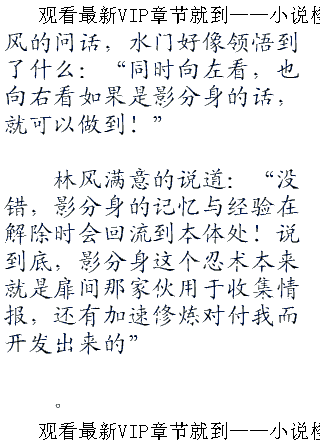 观看最新VIP章节就到——小说检
风的问话，水门好像领悟到
了什么：“同时向左看，也
向右看如果是影分身的话，
就可以做到！”
林风满意的说道：“没
错，影分身的记忆与经验在
解除时会回流到本体处！说
到底，影分身这个忍术本来
就是扉间那家伙用于收集情
报，还有加速修炼对付我而
开发出来的”
。
观看最新VIP章节就到——小说检